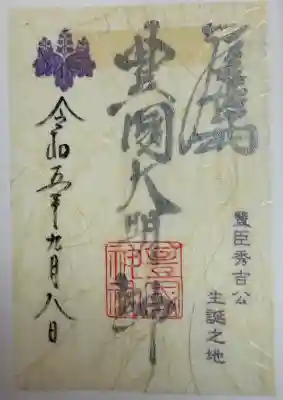 豐臣秀吉公
生誕之地
豊國大明神
豊國
神社
令和五年九月八日